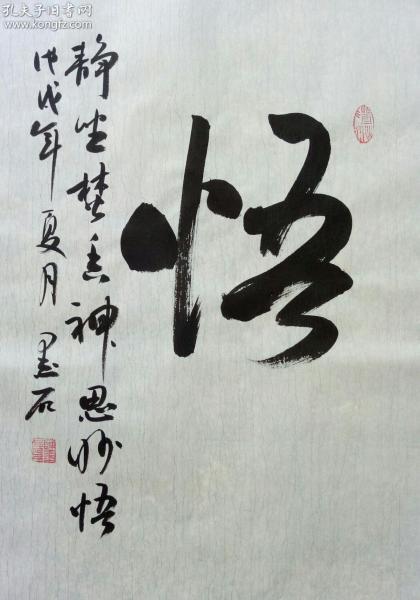 悟
静坐焚香神思妙悟
戊戌年夏月 墨石
孔夫子旧书网
www.kongfz.com